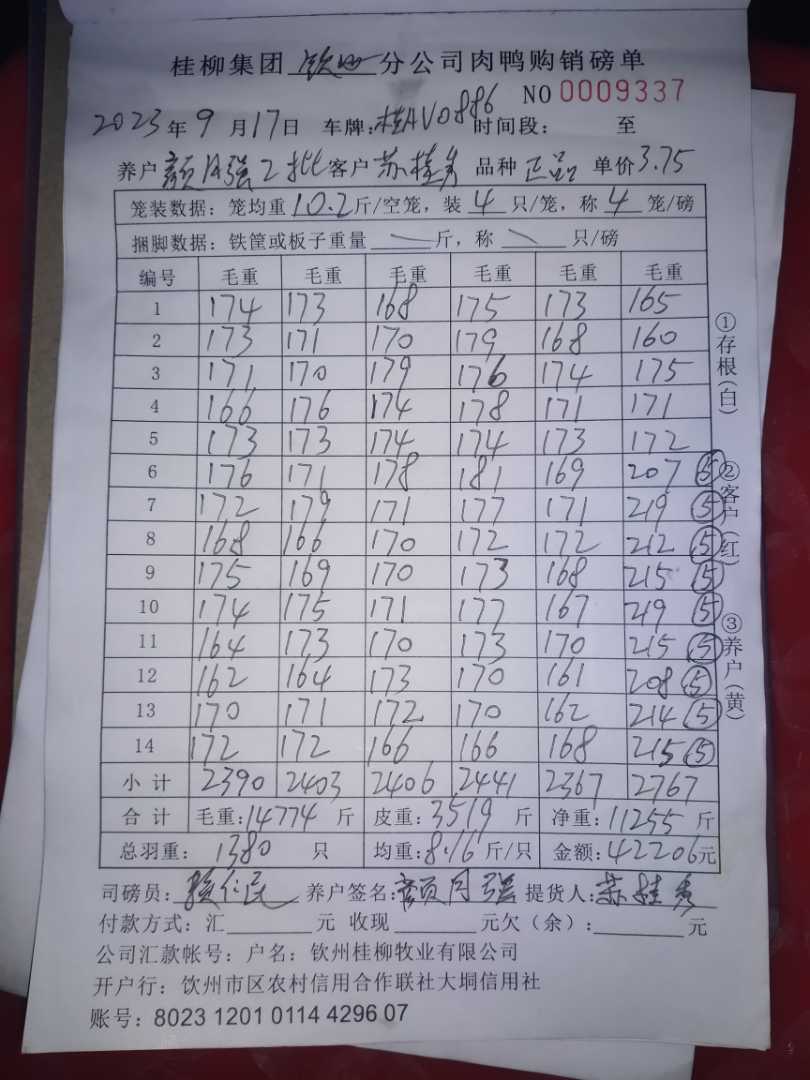 桂柳集团 钦州 分公司肉鸭购销磅单
NO 0009337
2023年9月17日 车牌:桂AV0886 时间段: 至
养户 颜月强2批 客户 苏桂秀 品种 正品 单价3.75
笼装数据: 笼均重 10.2 斤/空笼, 装 4 只/笼, 称 4 笼/磅
捆脚数据: 铁筐或板子重量 \ 斤, 称 \ 只/磅
编号 毛重 毛重 毛重 毛重 毛重 毛重
1 174 173 168 175 173 165
2 173 171 170 179 168 160
3 171 170 179 176 174 175
4 166 176 174 178 171 171
5 173 173 174 174 173 172
6 176 171 178 181 169 207 ⑤
7 172 179 171 177 171 219 ⑤
8 168 166 170 172 172 212 ⑤
9 175 169 170 173 168 215 ⑤
10 174 175 171 177 167 219 ⑤
11 164 173 170 173 170 215 ⑤
12 162 164 173 170 161 208 ⑤
13 170 171 172 170 162 214 ⑤
14 172 172 166 166 168 215 ⑤
小计 2390 2403 2406 2441 2367 2767
合计 毛重:14774 斤 皮重:3519 斤 净重:11255 斤
总羽重: 1380 只 均重:8.16 斤/只 金额:42206元
①存根(白)
②客户(红)
③养户(黄)
司磅员: 仁民 养户签名:颜月强 提货人:苏桂秀
付款方式: 汇 元 收现 元欠(余): 元
公司汇款帐号: 户名: 钦州桂柳牧业有限公司
开户行: 饮州市区农村信用合作联社大垌信用社
账号: 8023 1201 0114 4296 07